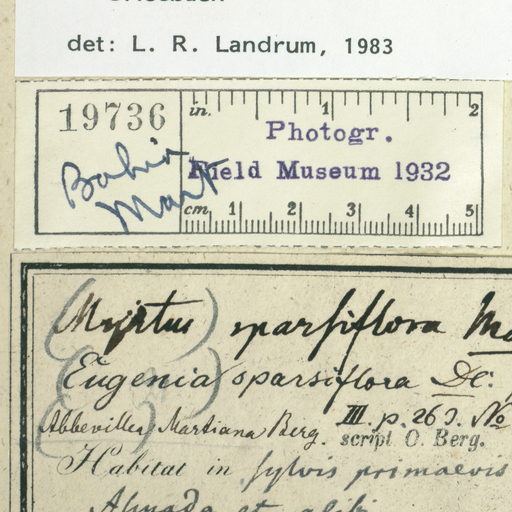 det: L. R. Landrum, 1983
19736
in. 1 2
Photogr.
Field Museum 1932
Bahia
Mart
cm. 1 2 3 4 5
(Myrtus) sparsiflora
(Eugenia) sparsiflora DC.
(Abbevillea) Martiana Berg. III. p. 263. No
script. O. Berg.
Habitat in sylvis primaevis
Almada et alibi